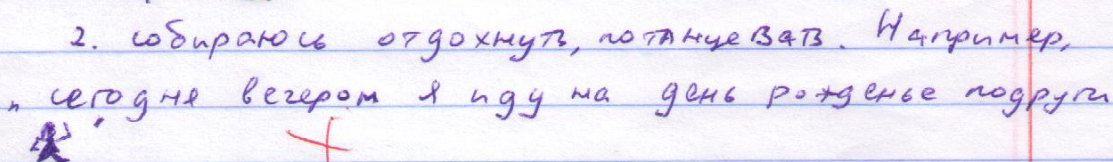 2. собираюсь отдохнуть, потанцевать. Например,
" сегодня вечером я иду на день рожденье подруги